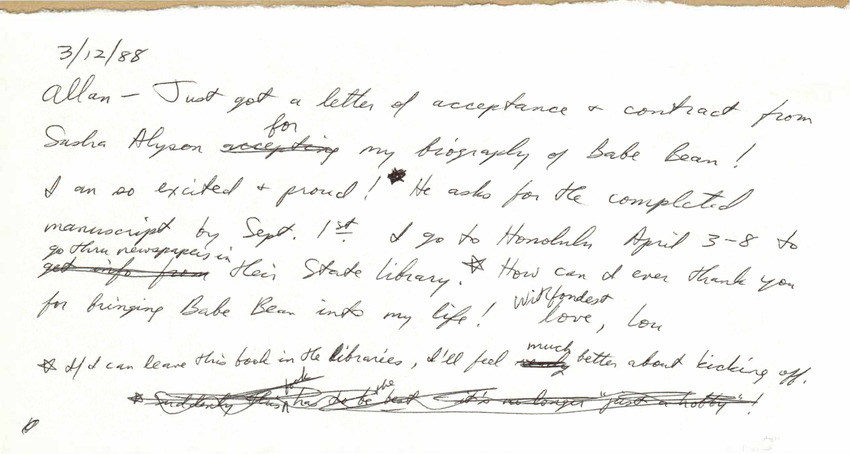 3/12/88
Allan – Just got a letter of acceptance + contract from
Sasha Alyson accepting for my biography of Babe Bean!
I am so excited + proud! He asks for the completed
manuscript by Sept. 1st. I go to Honolulu April 3-8 to
go thru newspapers in
get info from their State library. ☆ How can I ever thank you
for bringing Babe Bean into my life! With fondest love, Lou
☆ If I can leave this book in the libraries, I'll feel much better about kicking off.
☆ Suddenly this has to be the best it's no longer "just a hobby"!